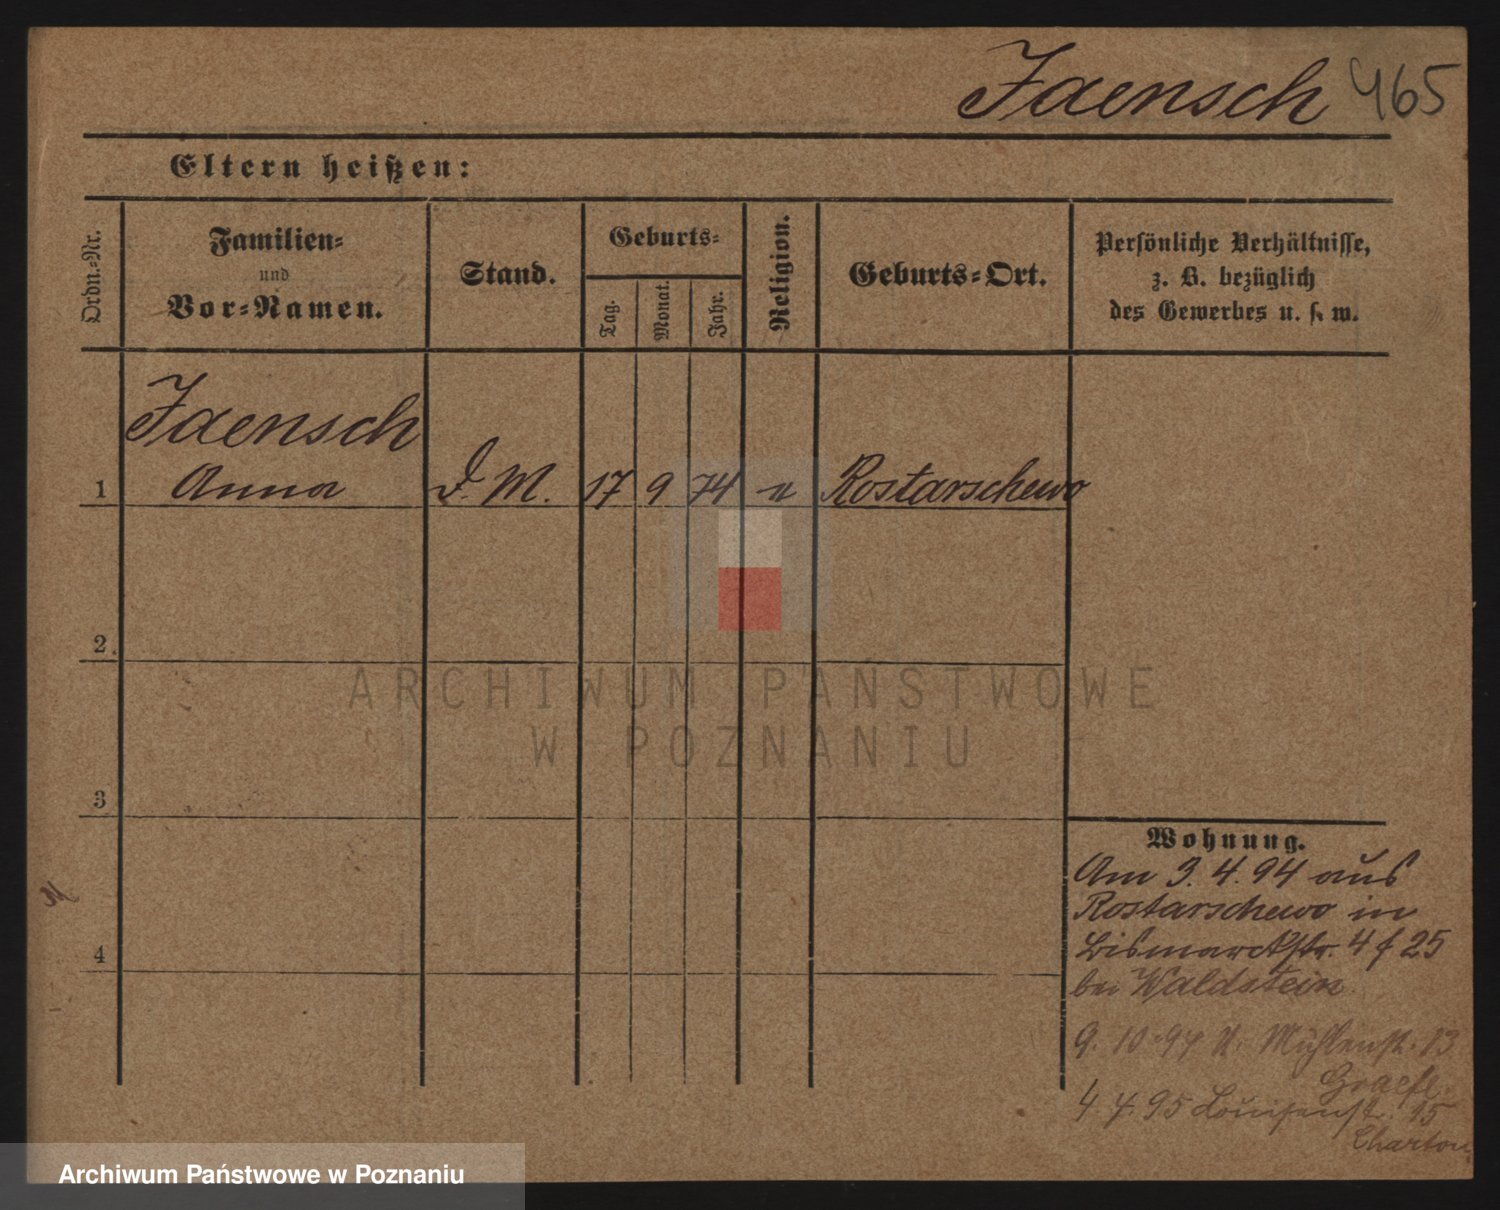 Jaensch 465
Eltern heißen:
Ordn.-Nr.
Familien-
und
Vor-Namen.
Stand.
Geburts-
Tag.
Monat.
Jahr.
Religion.
Geburts-Ort.
Persönliche Verhältnisse,
z. B. bezüglich
des Gewerbes u. s. w.
Jaensch
1 Anna D. M. 17 9 74 Rostarschewo
2.
3
4
Wohnung.
Am 3. 4. 94 aus
Rostarschewo in
Bismarckstr. 4 f 25
bei Waldstein
9. 10. 94 Mühlenstr. 13
Graefe
4. 4. 95 Louisenstr. 15
Charton
ARCHIWUM PAŃSTWOWE
W POZNANIU
Archiwum Państwowe w Poznaniu